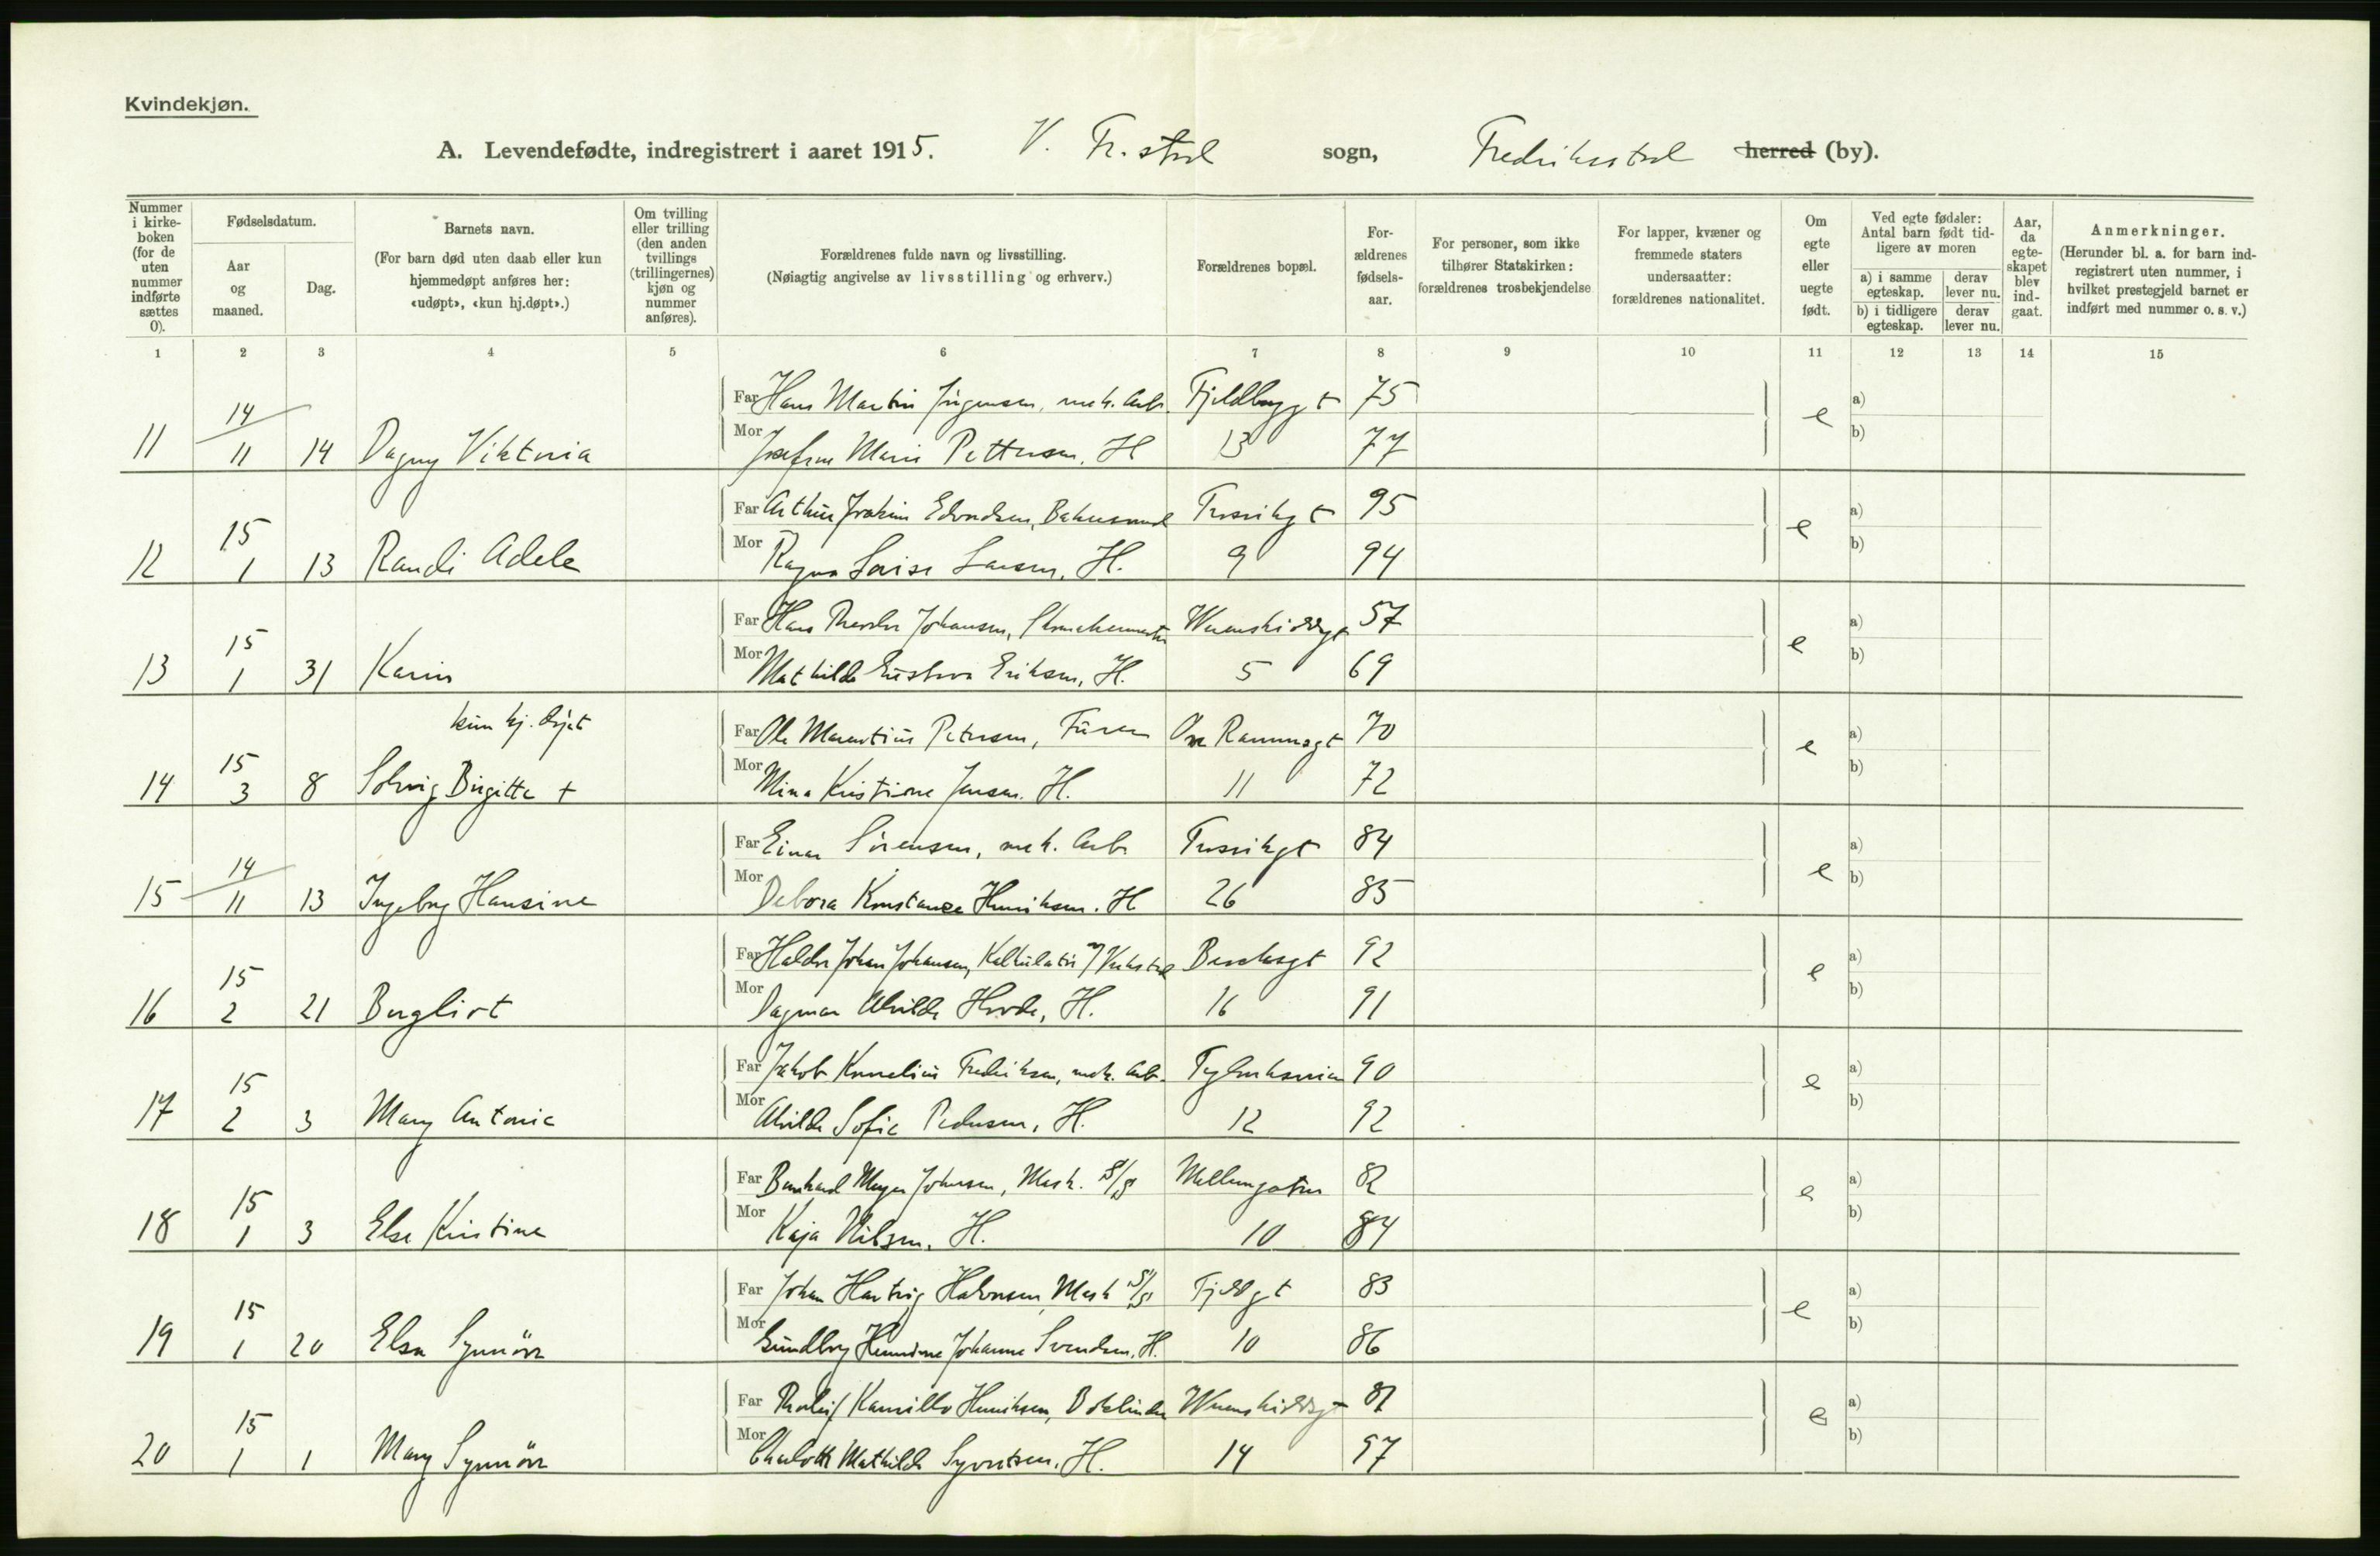 Kvindekjøn.
A. Levendefødte, indregistrert i aaret 1915. V. Fr.stad sogn, Fredriksstad herred (by).
Nummer i kirke-boken (for de uten nummer indførte sættes 0).
Fødselsdatum.
Aar og maaned.
Dag.
Barnets navn.
(For barn død uten daab eller kun hjemmedøpt anføres her: «udøpt», «kun hj.døpt».)
Om tvilling eller trilling (den anden tvillings (trillingernes) kjøn og nummer anføres).
Forældrenes fulde navn og livsstilling.
(Nøiagtig angivelse av livsstilling og erhverv.)
Forældrenes bopæl.
For-ældrenes fødsels-aar.
For personer, som ikke tilhører Statskirken: forældrenes trosbekjendelse
For lapper, kvæner og fremmede staters undersaatter: forældrenes nationalitet.
Om egte eller uegte født.
Ved egte fødsler: Antal barn født tid-ligere av moren
a) i samme egteskap.
derav lever nu.
b) i tidligere egteskap.
derav lever nu.
Aar, da egte-skapet blev ind-gaat.
Anmerkninger.
(Herunder bl. a. for barn ind-registrert uten nummer, i hvilket prestegjeld barnet er indført med nummer o. s. v.)
1 2 3 4 5 6 7 8 9 10 11 12 13 14 15
14 Far Hans Martin Jørgensen, mek. Arb. Fjeldbryggt 75 e a)
11 11 14 Dagny Viktoria Mor Josefine Marie Pettersen, H 13 77 b)
15 Far Arthur Joakim Edvardsen, Trosvikgt 95 e a)
12 1 13 Randi Adele Mor Ragna Lovise Larsen, H. 9 94 b)
15 Far Hans Theodor Johansen, 57 e a)
13 1 31 Karin Mor Mathilde Gustava Eriksen, H. 5 69 b)
kun hj. døpt
15 Far Ole Marentius Petersen, Rammsgt 70 e a)
14 3 8 Solveig Birgitte + Mor Mina Kristine Jensen. H. 11 72 b)
14 Far Einar Sørensen, mek. Arb. Trosvikgt 84 e a)
15 11 13 Ingeborg Hansine Mor Debora Konstanse Henriksen. H 26 85 b)
15 Far Haldor Johan Johansen, Kalkulatør 92 e a)
16 2 21 Bergliot Mor Dagmar Alvilde Hovde, H. 16 91 b)
15 Far Jakob Kornelius Fredriksen, mek. Arb. 90 e a)
17 2 3 Mary Antonie Mor Alvilde Sofie Pedersen, H. 12 92 b)
15 Far Bernhard Meyer Johnsen, Mask. S/S Mellemgaten 82 e a)
18 1 3 Else Kristine Mor Kaja Nilsen, H. 10 84 b)
15 Far Johan Hartvig Halvorsen Mask S/S Fjeldgt 83 e a)
19 1 20 Elsa Synnöve Mor Gundborg Johanne Svendsen, H. 10 86 b)
15 Far Thorleif Kamillo Henriksen, e a)
20 1 1 Mary Synnöve Mor Charlotte Mathilde Syvertsen, H. 14 97 b)